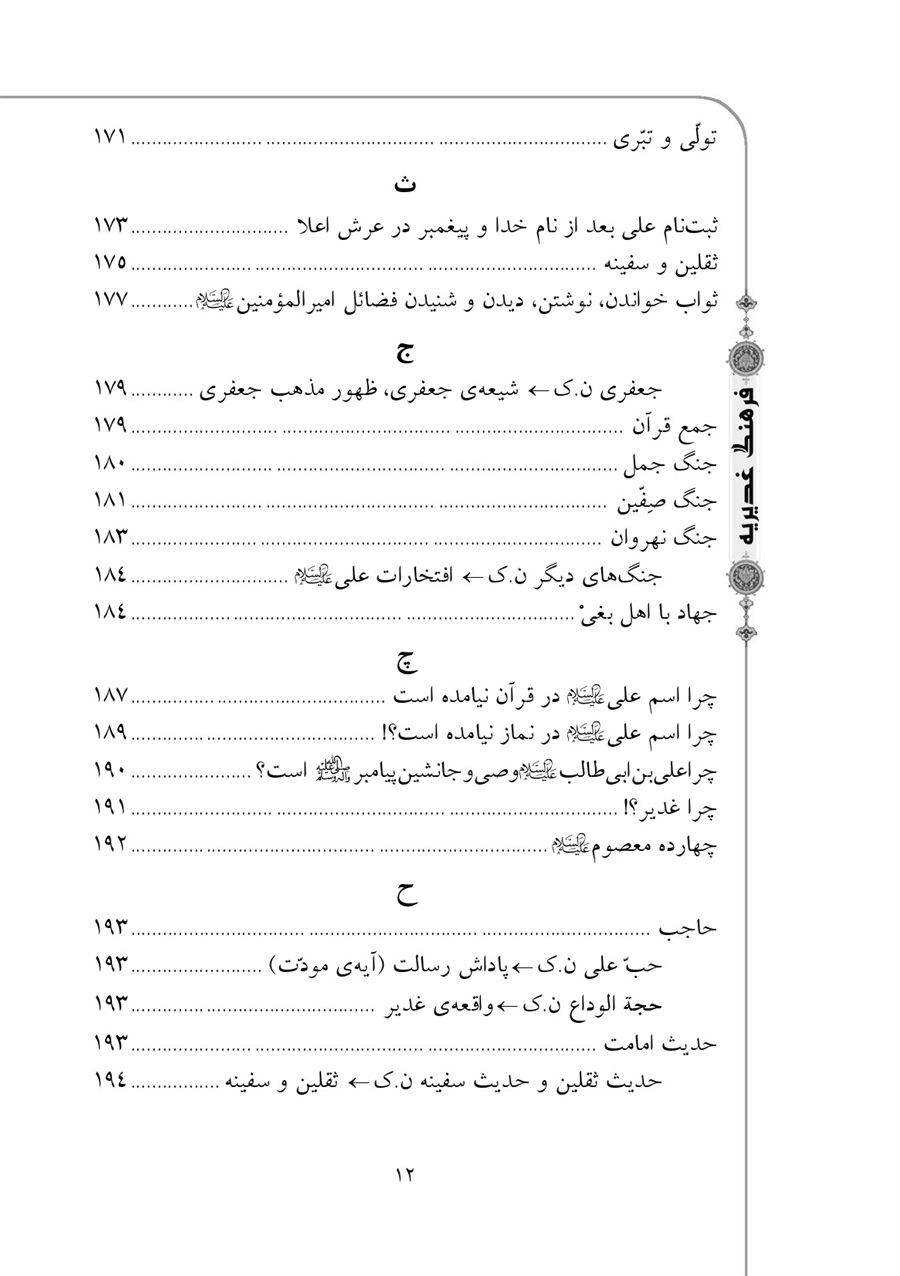 تولّی و تبّری ................................................................ ۱۷۱
ث
ثبت‌نام علی بعد از نام خدا و پیغمبر در عرش اعلا ............................. ۱۷۳
ثقلین و سفینه ................................................................ ۱۷۵
ثواب خواندن، نوشتن، دیدن و شنیدن فضائل امیرالمؤمنین علیه‌السلام ............ ۱۷۷
ج
جعفری ن.ک ← شیعه‌ی جعفری، ظهور مذهب جعفری ............ ۱۷۹
جمع قرآن ................................................................ ۱۷۹
جنگ جمل ................................................................ ۱۸۰
جنگ صِفّین ................................................................ ۱۸۱
جنگ نهروان ................................................................ ۱۸۳
جنگ‌های دیگر ن.ک ← افتخارات علی علیه‌السلام ............................. ۱۸٤
جهاد با اهل بغیْ ................................................................ ۱۸٤
چ
چرا اسم علی علیه‌السلام در قرآن نیامده است ........................................ ۱۸۷
چرا اسم علی علیه‌السلام در نماز نیامده است؟! ........................................ ۱۸۹
چرا علی‌بن‌ابی‌طالب علیه‌السلام وصی و جانشین پیامبر صلی‌الله‌علیه‌وآله‌وسلم است؟ ...................... ۱۹۰
چرا غدیر؟! ................................................................ ۱۹۱
چهارده معصوم علیه‌السلام ................................................................ ۱۹۲
ح
حاجب ................................................................ ۱۹۳
حبّ علی ن.ک ← پاداش رسالت (آیه‌ی مودّت) ........................ ۱۹۳
حجة الوداع ن.ک ← واقعه‌ی غدیر ........................................ ۱۹۳
حدیث امامت ................................................................ ۱۹۳
حدیث ثقلین و حدیث سفینه ن.ک ← ثقلین و سفینه ................. ۱۹٤
فرهنگ غدیریه
۱۲